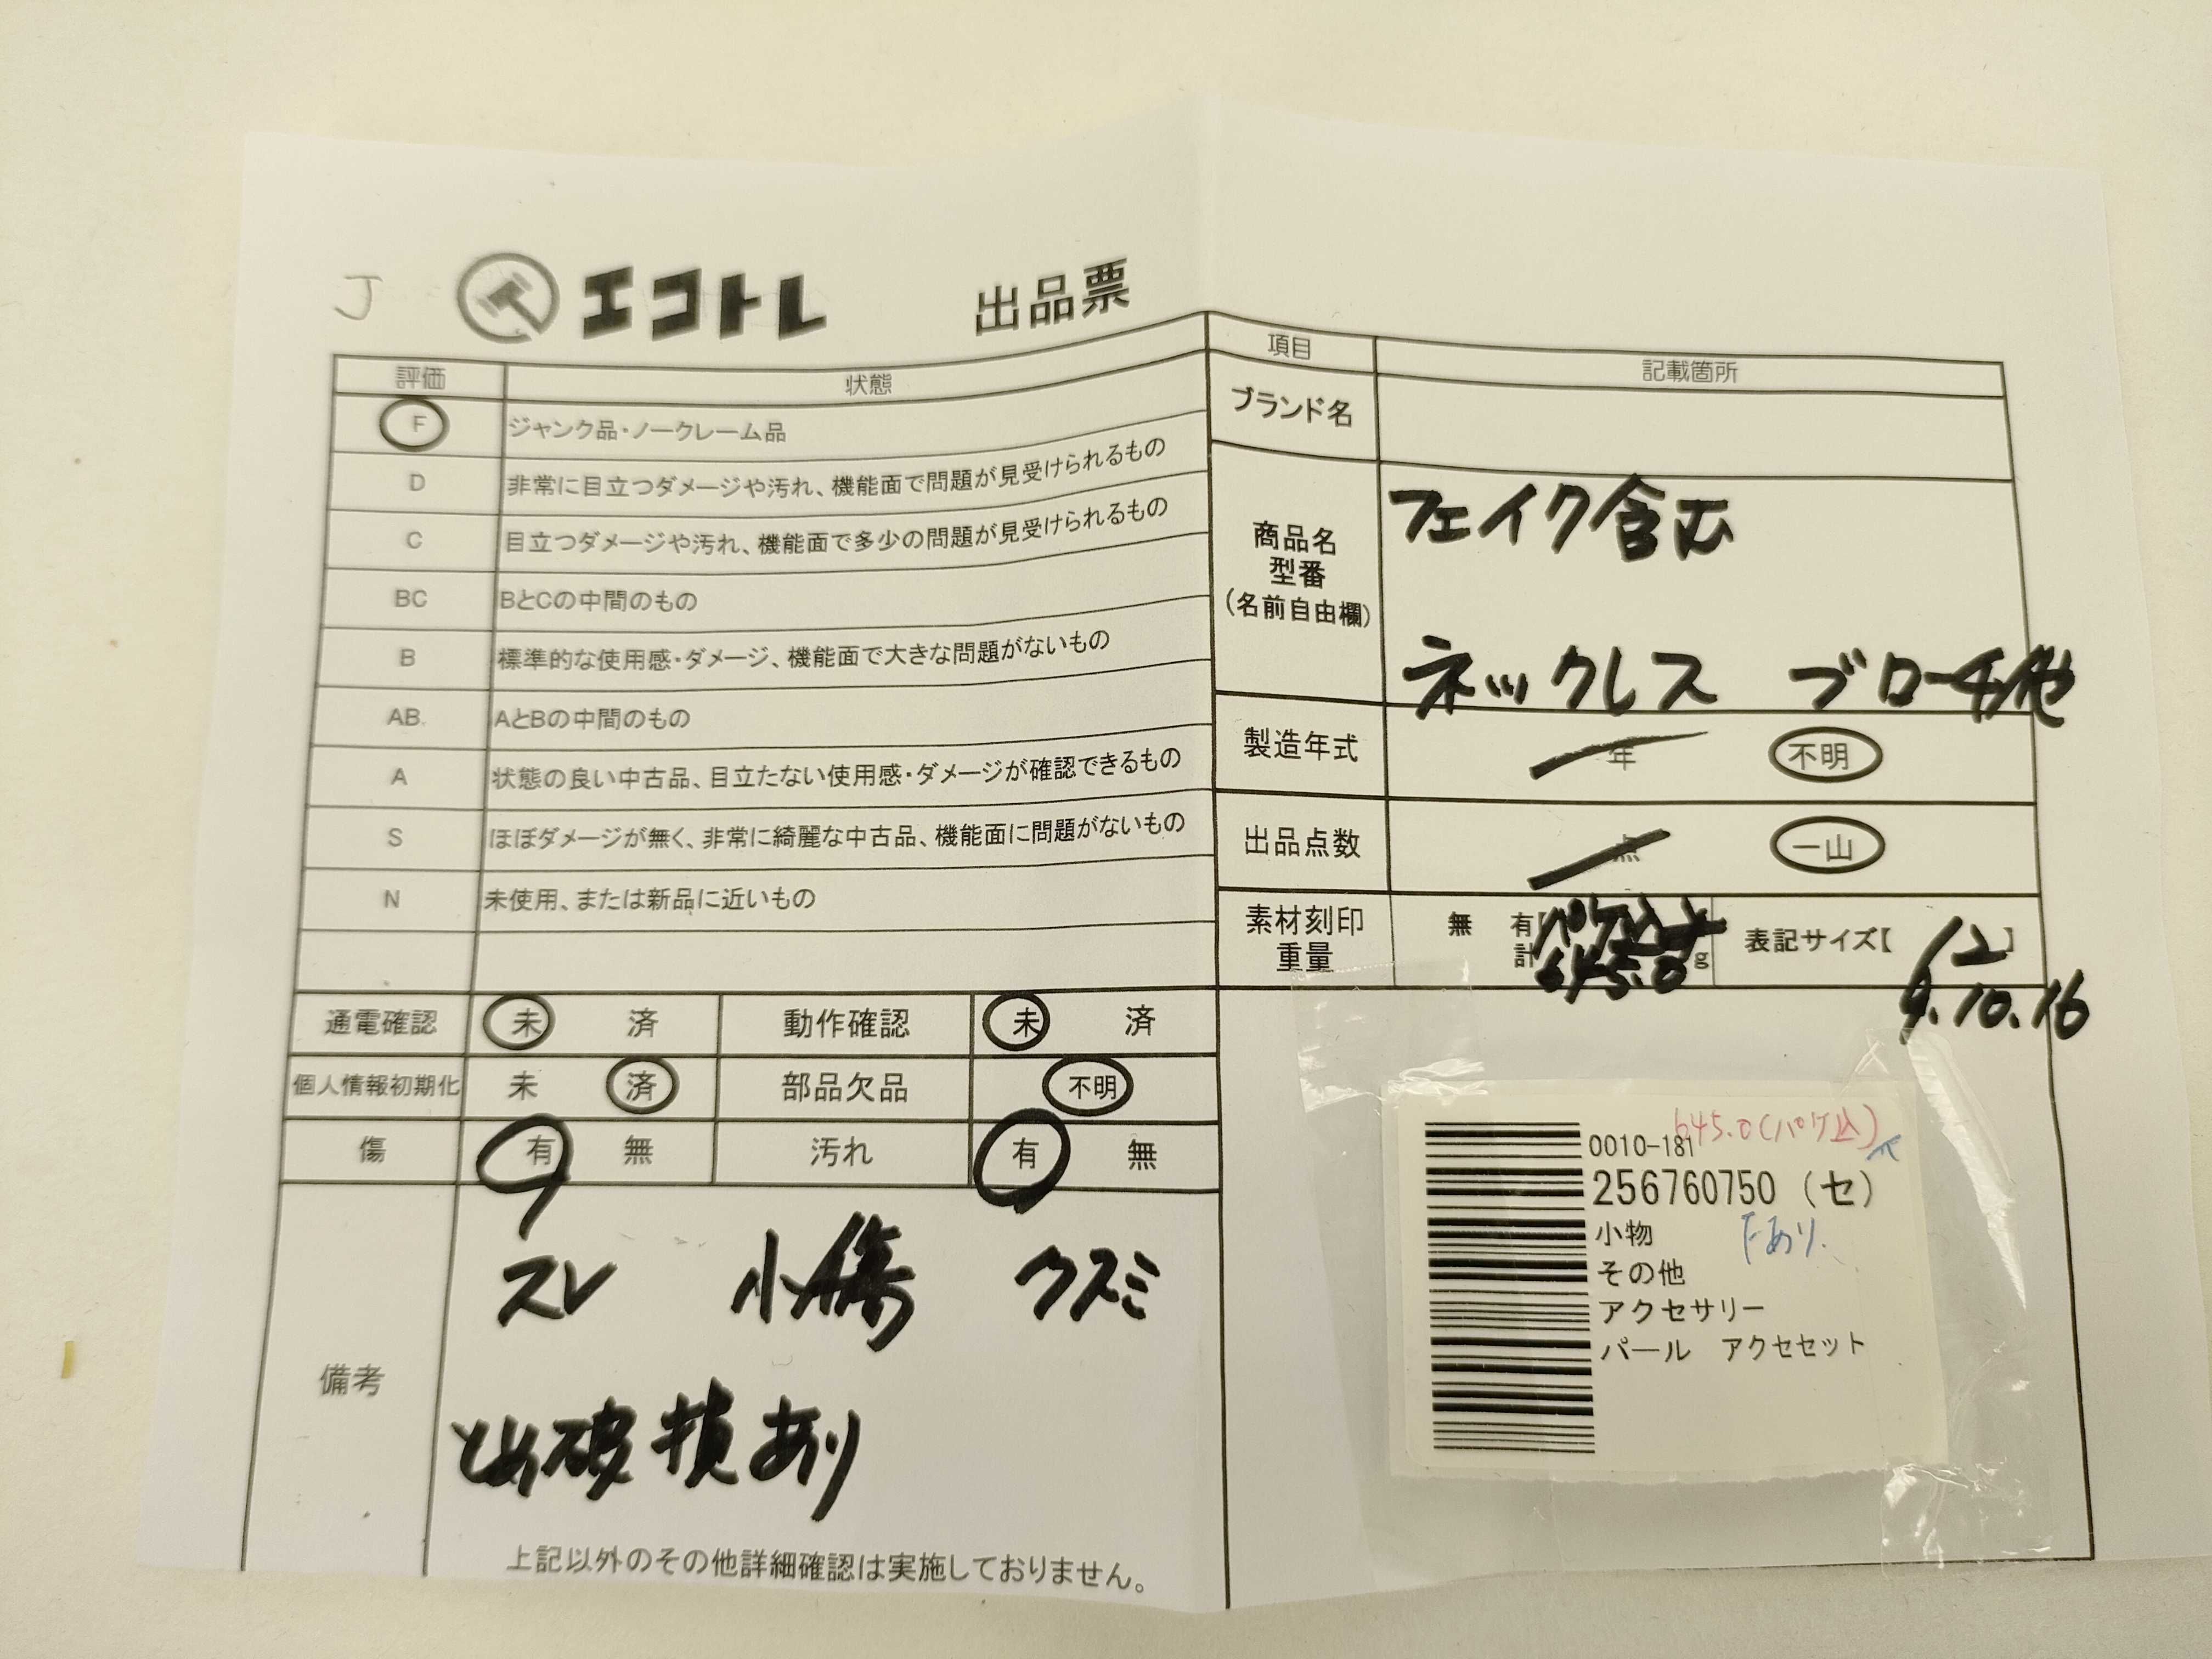 J
エコトレ 出品票
評価 状態
F ジャンク品・ノークレーム品
D 非常に目立つダメージや汚れ、機能面で問題が見受けられるもの
C 目立つダメージや汚れ、機能面で多少の問題が見受けられるもの
BC BとCの中間のもの
B 標準的な使用感・ダメージ、機能面で大きな問題がないもの
AB AとBの中間のもの
A 状態の良い中古品、目立たない使用感・ダメージが確認できるもの
S ほぼダメージが無く、非常に綺麗な中古品、機能面に問題がないもの
N 未使用、または新品に近いもの
通電確認 未 済 動作確認 未 済
個人情報初期化 未 済 部品欠品 不明
傷 有 無 汚れ 有 無
備考
スレ 小傷 クスミ
とめ破損あり
上記以外のその他詳細確認は実施しておりません。
項目 記載箇所
ブランド名
商品名
型番
(名前自由欄)
フェイク含む
ネックレス ブローチ他
製造年式 年 不明
出品点数 点 一山
素材刻印 無 有【
重量 計 645.0 g
表記サイズ【 12 】
9.10.16
645.0(パケ込)
0010-181
256760750 (セ)
小物
Fあり.
その他
アクセサリー
パール アクセセット